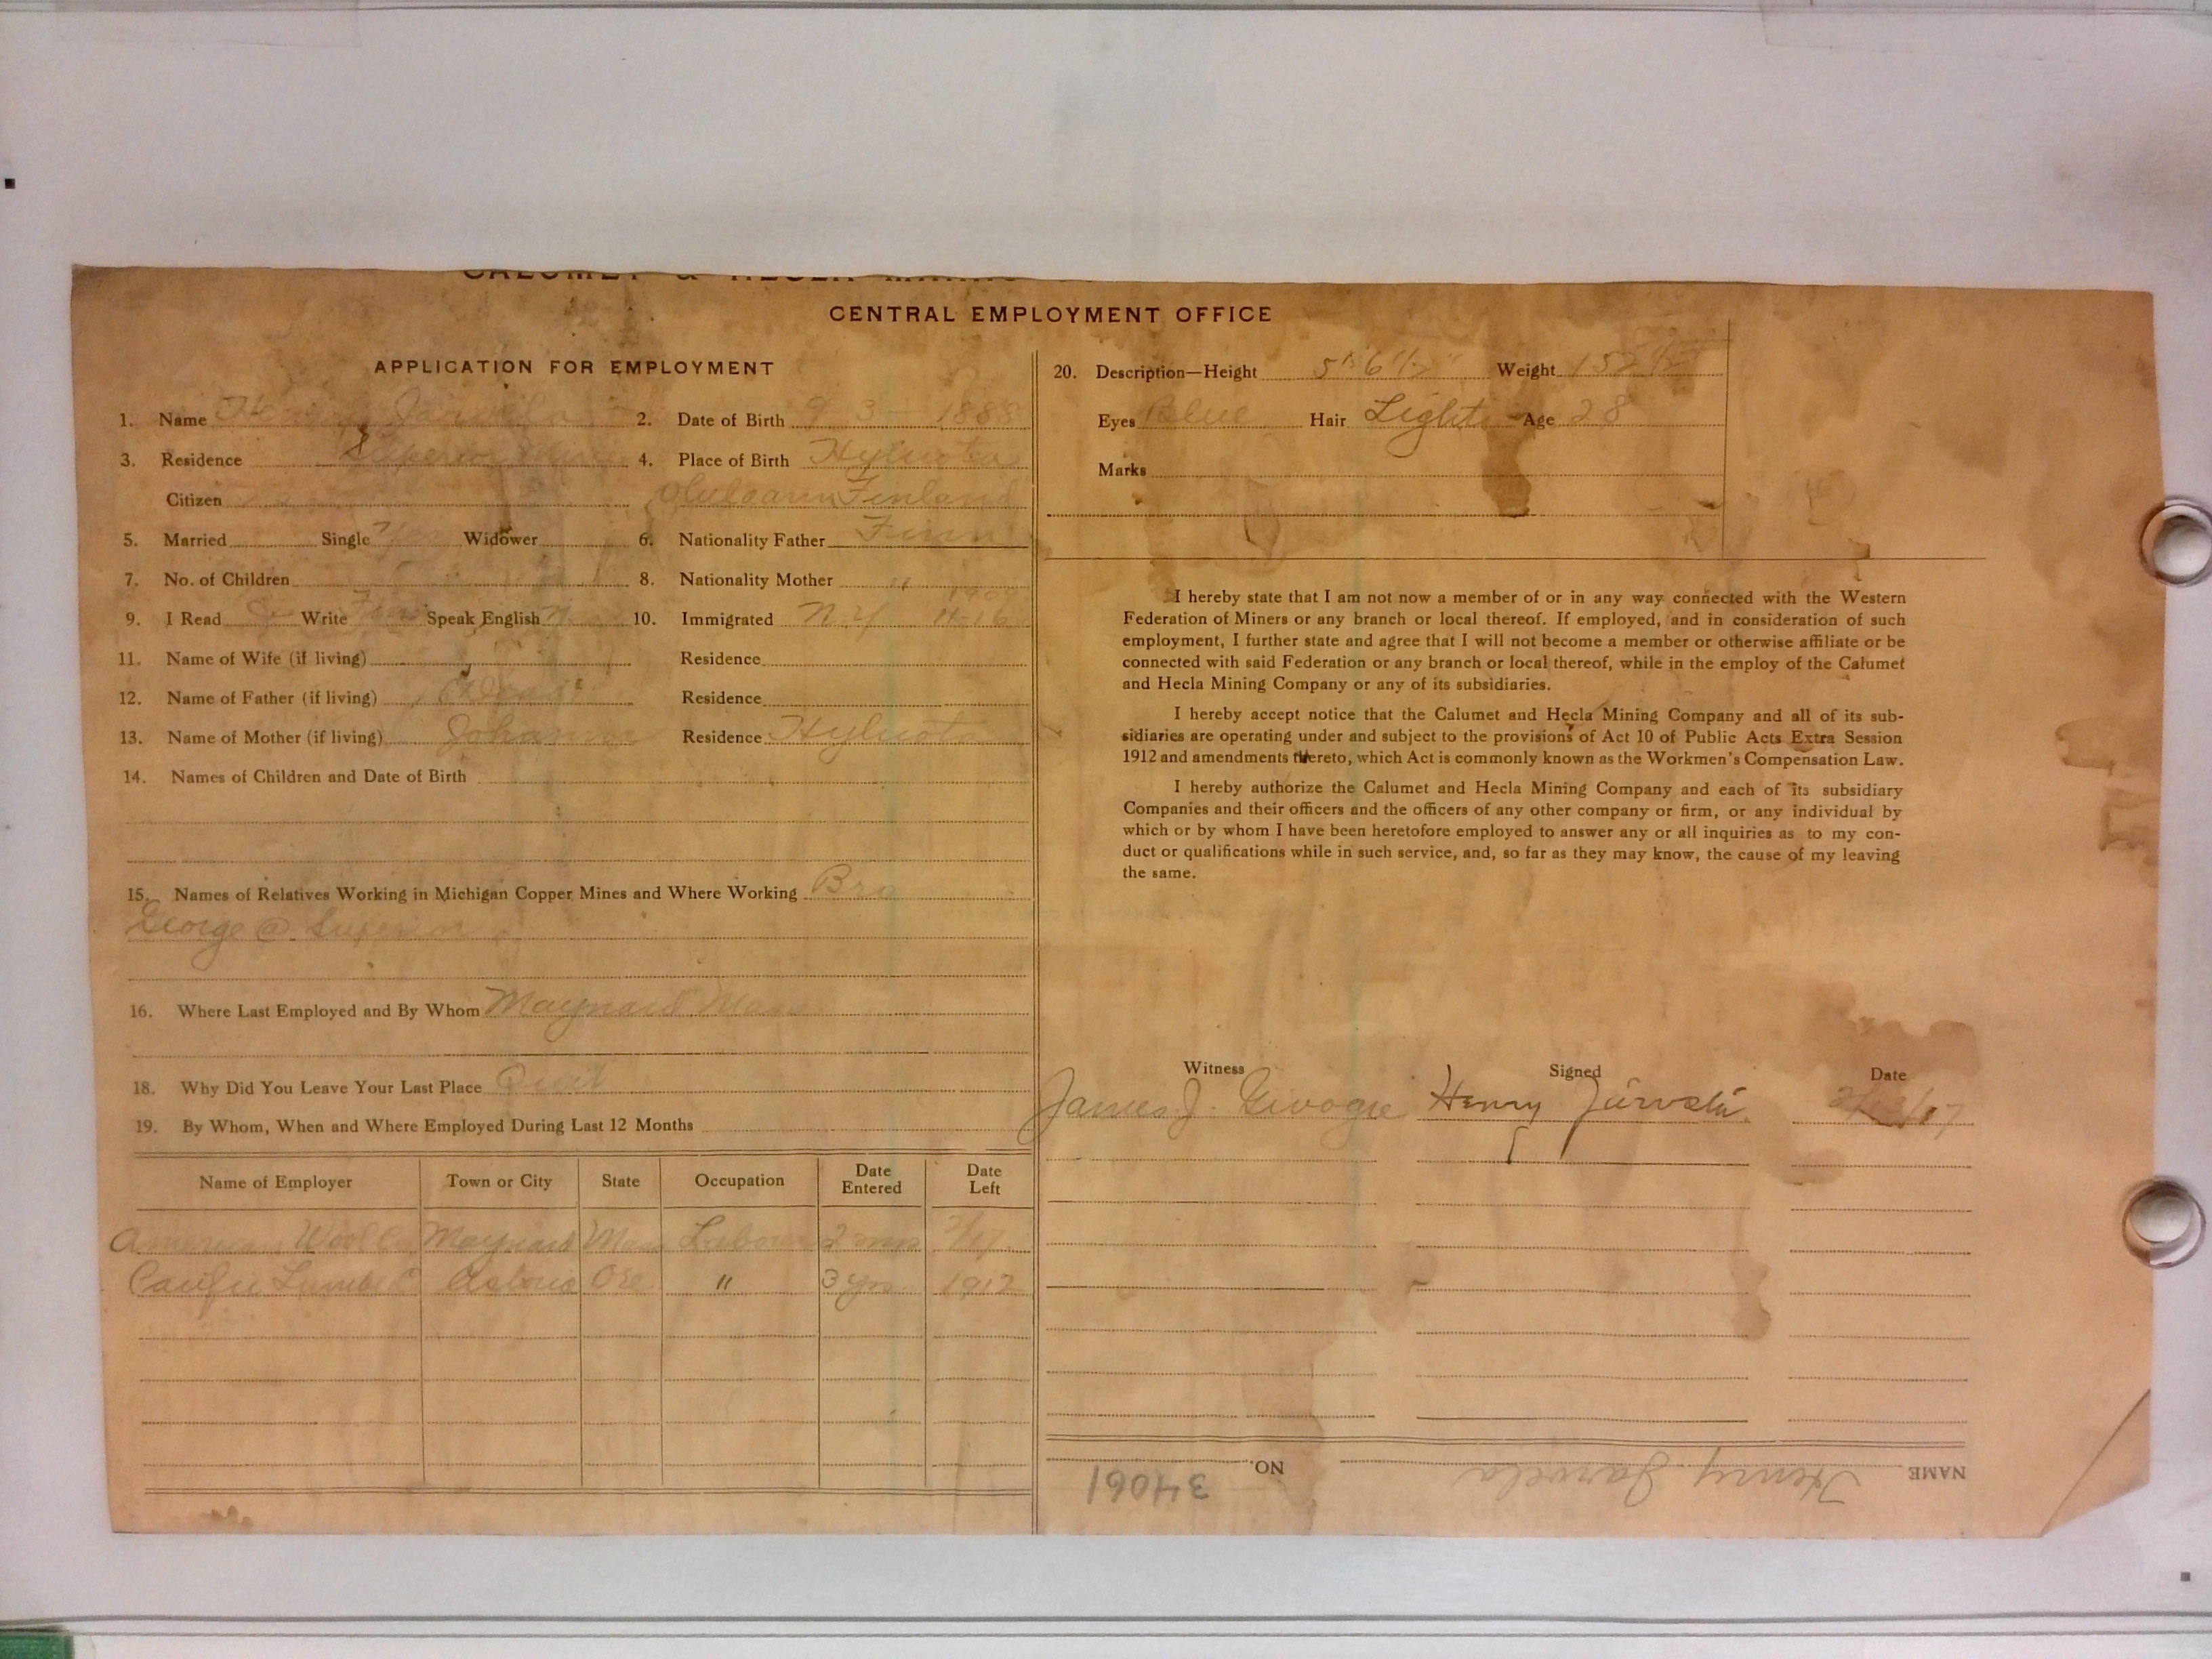 CALUMET & HECLA MINING
CENTRAL EMPLOYMENT OFFICE
APPLICATION FOR EMPLOYMENT
1. Name Henry Jarvela 2. Date of Birth 9 3 1888
3. Residence Superior 4. Place of Birth Hyluoto
Citizen Finland
5. Married Single Yes Widower 6. Nationality Father Finn
7. No. of Children 8. Nationality Mother "
9. I Read Write Finn Speak English No 10. Immigrated N.Y
11. Name of Wife (if living) Residence
12. Name of Father (if living) Dead Residence
13. Name of Mother (if living) Johanna Residence Hyluoto
14. Names of Children and Date of Birth
15. Names of Relatives Working in Michigan Copper Mines and Where Working Bro
George @ Superior
16. Where Last Employed and By Whom Maynard Mass
18. Why Did You Leave Your Last Place Quit
19. By Whom, When and Where Employed During Last 12 Months
Name of Employer Town or City State Occupation Date Entered Date Left
American Wool Co Maynard Mass Labour 2 mos 2/17
Pacific Lumber C Astoria Ore " 3 yrs 1917
20. Description—Height 5' 6 1/2" Weight 152
Eyes Blue Hair Light Age 28
Marks
I hereby state that I am not now a member of or in any way connected with the Western
Federation of Miners or any branch or local thereof. If employed, and in consideration of such
employment, I further state and agree that I will not become a member or otherwise affiliate or be
connected with said Federation or any branch or local thereof, while in the employ of the Calumet
and Hecla Mining Company or any of its subsidiaries.
I hereby accept notice that the Calumet and Hecla Mining Company and all of its sub-
sidiaries are operating under and subject to the provisions of Act 10 of Public Acts Extra Session
1912 and amendments thereto, which Act is commonly known as the Workmen's Compensation Law.
I hereby authorize the Calumet and Hecla Mining Company and each of its subsidiary
Companies and their officers and the officers of any other company or firm, or any individual by
which or by whom I have been heretofore employed to answer any or all inquiries as to my con-
duct or qualifications while in such service, and, so far as they may know, the cause of my leaving
the same.
Witness Signed Date
James J. Henry Järvelä
NAME Henry Jarvela NO. 34061